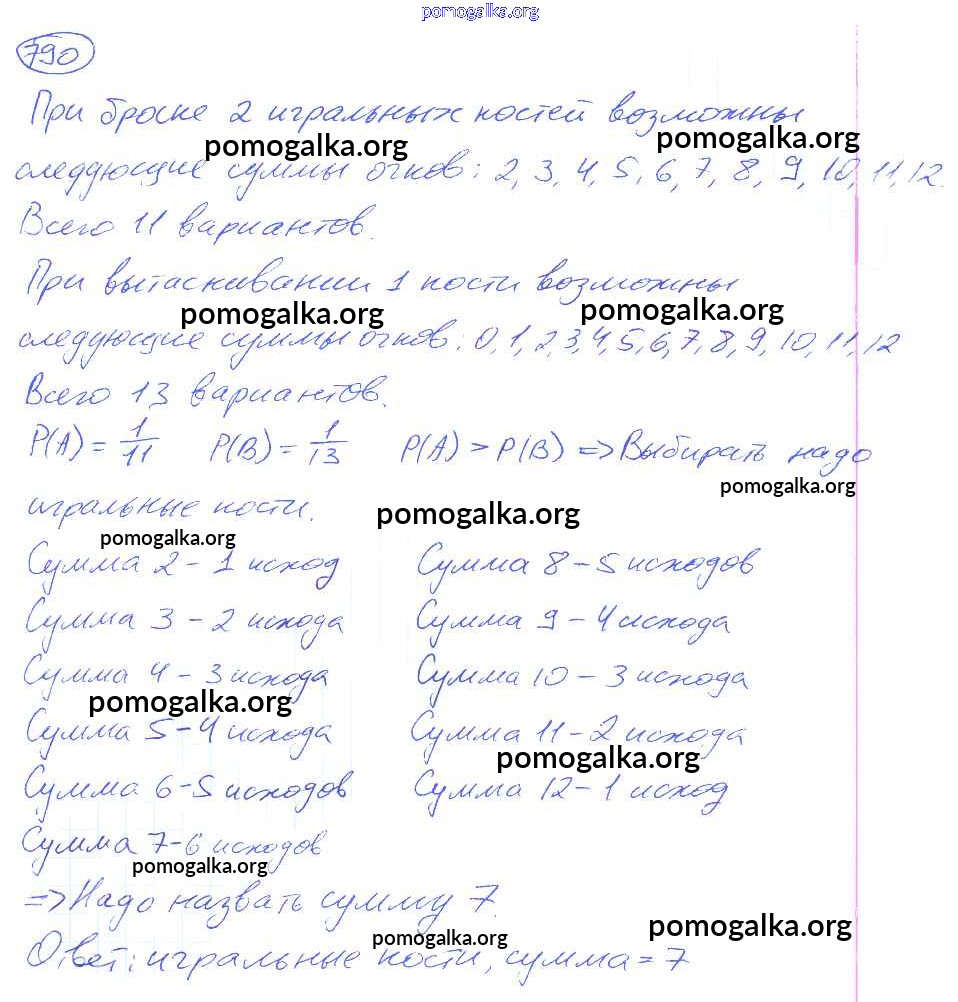 pomogalka.org
790
При броске 2 игральных костей возможны
pomogalka.org
pomogalka.org
следующие суммы очков: 2, 3, 4, 5, 6, 7, 8, 9, 10, 11, 12.
Всего 11 вариантов.
При вытаскивании 1 кости возможны
pomogalka.org
pomogalka.org
следующие суммы очков: 0, 1, 2, 3, 4, 5, 6, 7, 8, 9, 10, 11, 12
Всего 13 вариантов.
P(A) = 1/11 P(B) = 1/13 P(A) > P(B) => Выбирать надо
pomogalka.org
игральные кости.
pomogalka.org
pomogalka.org
Сумма 2 – 1 исход Сумма 8 – 5 исходов
Сумма 3 – 2 исхода Сумма 9 – 4 исхода
Сумма 4 – 3 исхода Сумма 10 – 3 исхода
pomogalka.org
Сумма 5 – 4 исхода Сумма 11 – 2 исхода
pomogalka.org
Сумма 6 – 5 исходов Сумма 12 – 1 исход
Сумма 7 – 6 исходов
pomogalka.org
=> Надо назвать сумму 7.
pomogalka.org
pomogalka.org
Ответ: игральные кости, сумма = 7